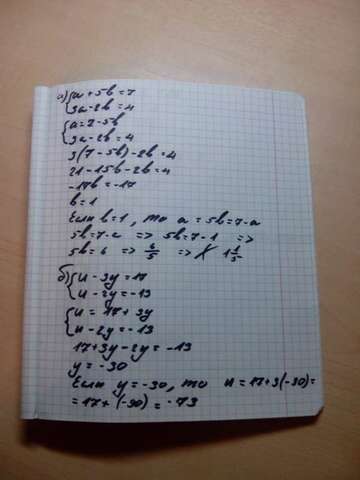 а) {a + 5b = 7
3a - 2b = 4
{a = 7 - 5b
3a - 2b = 4
3(7 - 5b) - 2b = 4
21 - 15b - 2b = 4
-17b = -17
b = 1
Если b = 1, то a = 5b = 7 - a
5b = 7 - a => 5b = 7 - 1 =>
5b = 6 => 6/5 => 1 1/5
б) {u - 3y = 17
u - 2y = -13
{u = 17 + 3y
u - 2y = -13
17 + 3y - 2y = -13
y = -30
Если y = -30, то u = 17 + 3(-30) =
= 17 + (-90) = -73